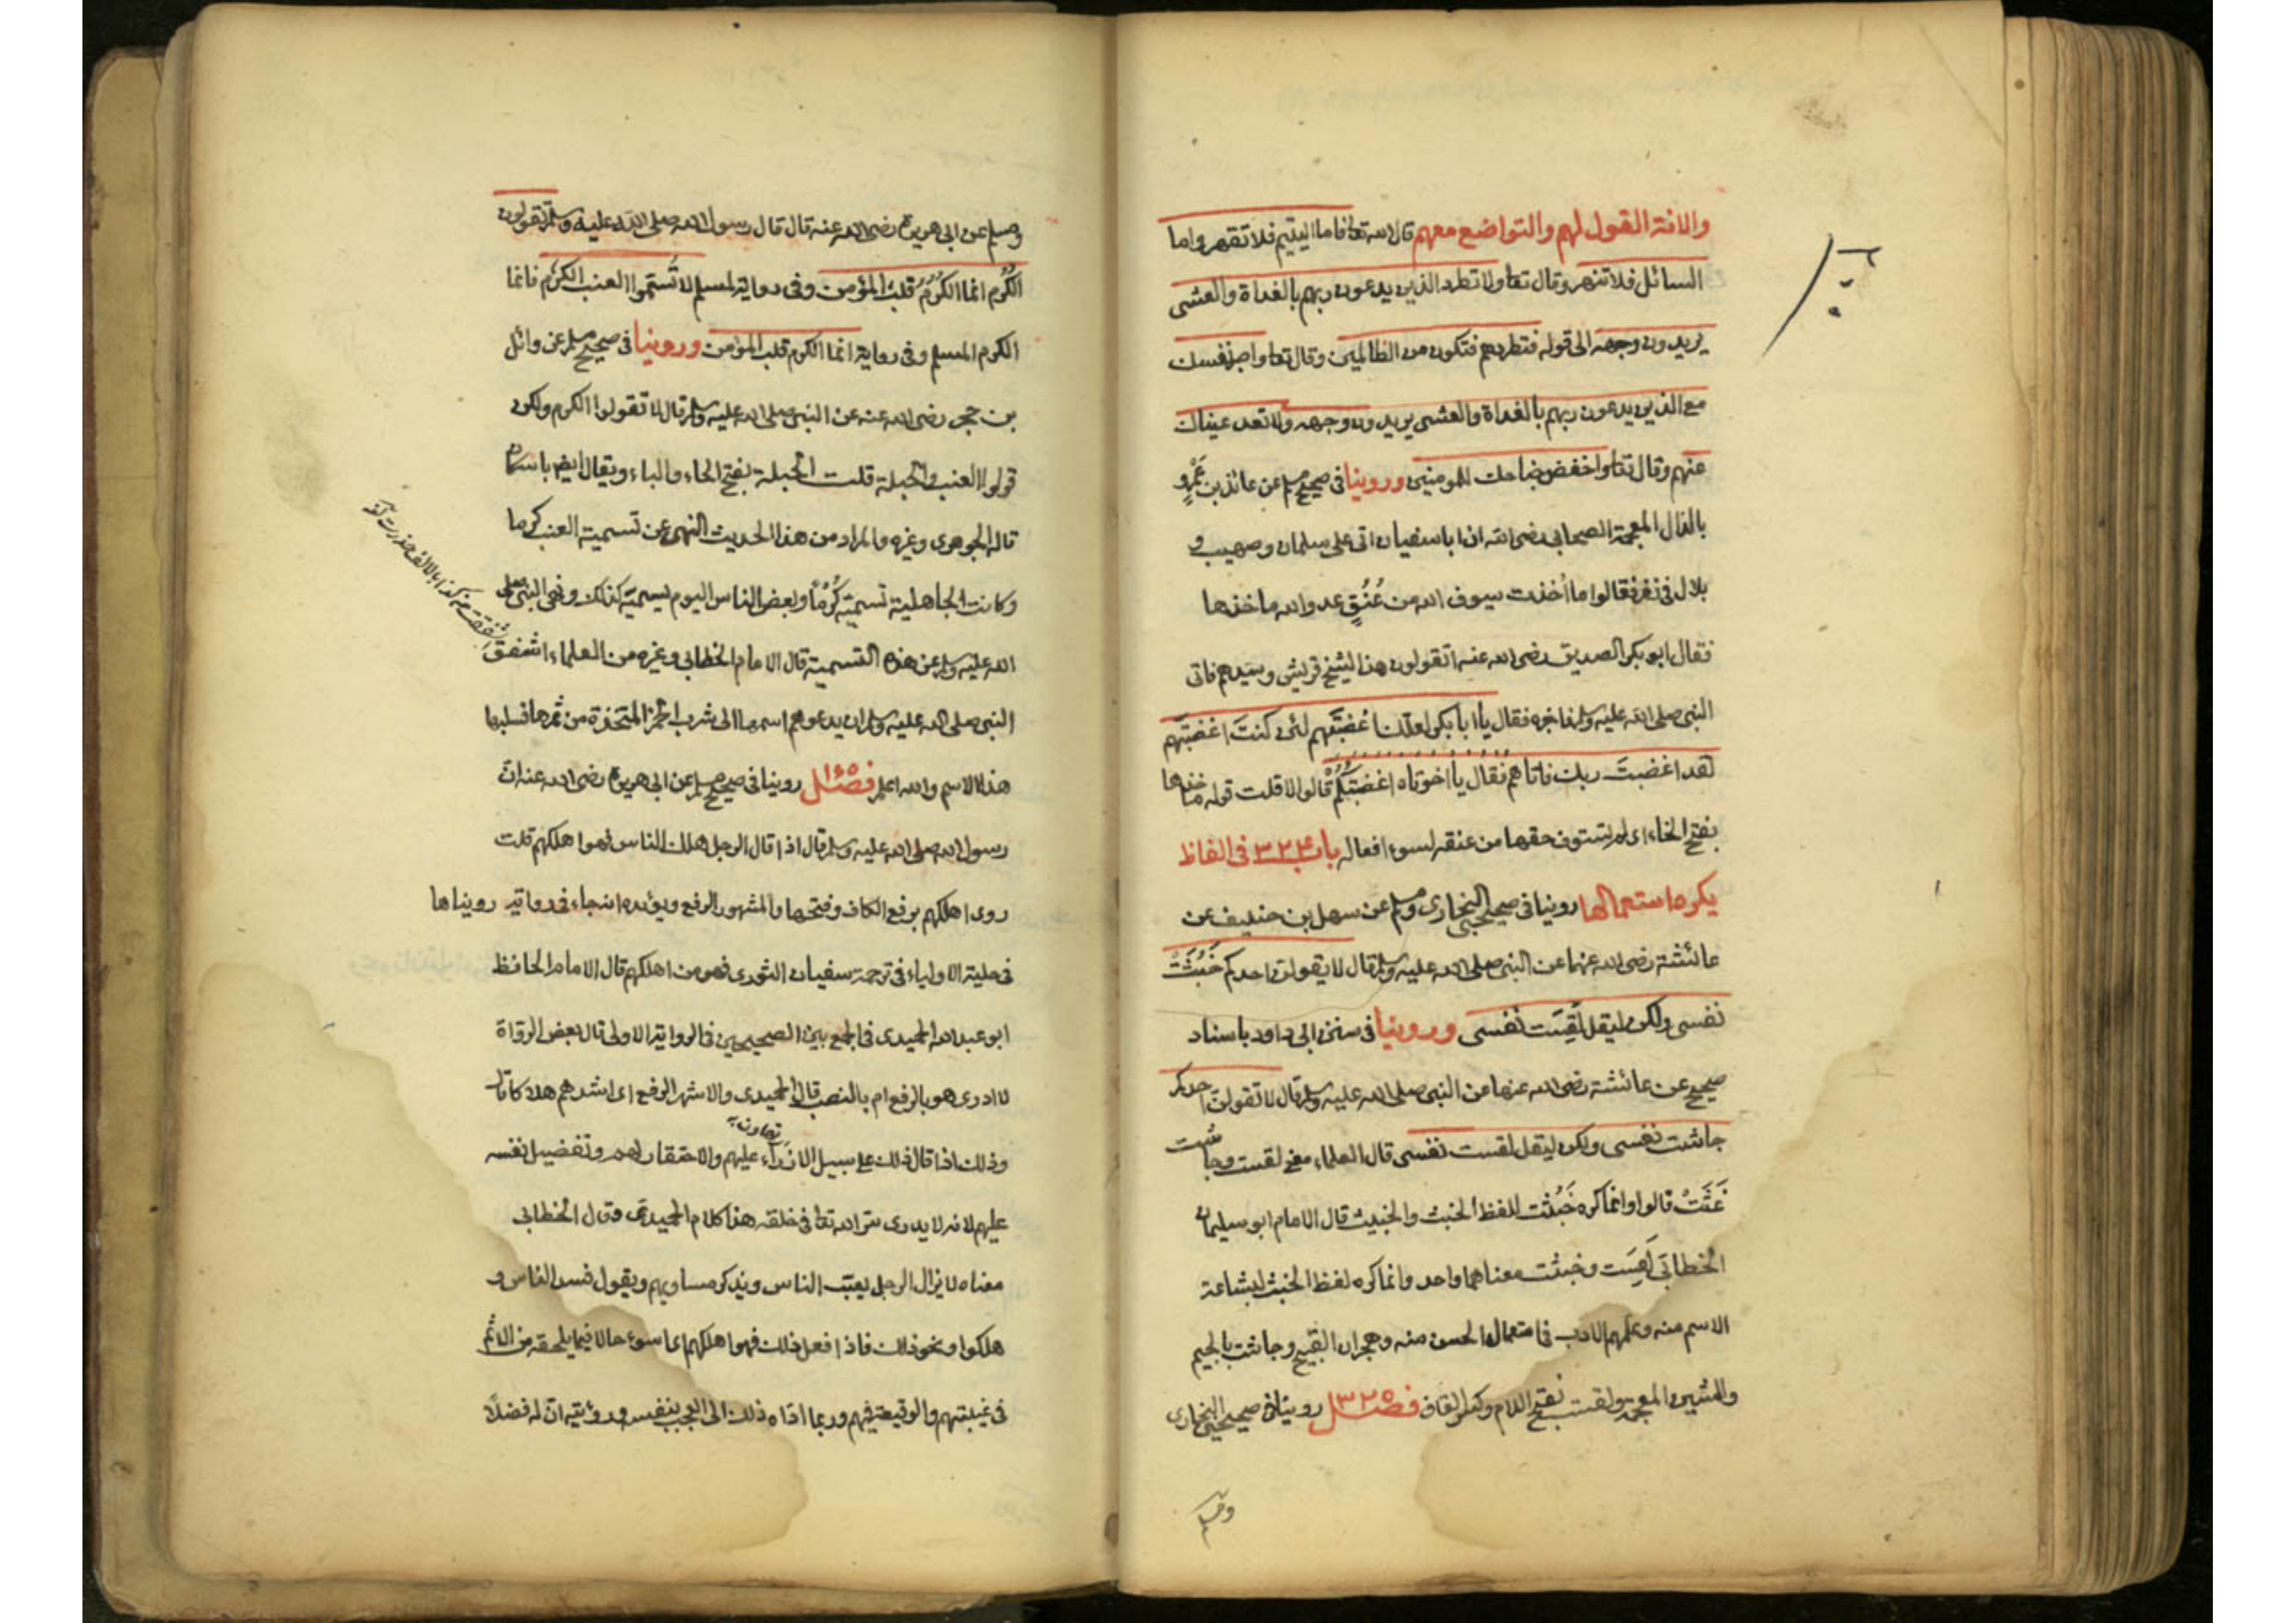 والانة القول لهم والتواضع معهم قال الله تعا فاما اليتيم فلا تقهر واما
السائل فلا تنهر وقال تعا ولا تطرد الذين يدعون ربهم بالغداة والعشى
يريدون وجهه الى قوله فتطردهم فتكون من الظالمين وقال تعا واصبر نفسك
مع الذين يدعون ربهم بالغداة والعشى يريدون وجهه ولا تعد عيناك
عنهم وقال تعا واخفض جناحك للمومنين وروينا فى صحيح مسلم عن عائذ بن عَمْرٍو
بالذال المعجمة الصحابى رضى الله ان ابا سفيان اتى على سلمان وصهيب و
بلال فى نفر فقالوا ما اُخذت سيوف الله من عُنُقِ عدو الله ماخذها
فقال ابو بكر الصديق رضى الله عنه اتقولون هذا لشيخ قريش وسيدهم فاتى
النبى صلى الله عليه وسلم فاخبره فقال يا ابا بكر لعلك اغضبتَهم لئن كنتَ اغضبتَهم
لقد اغضبتَ ربك فاتاهم فقال يا اخوتاه اغضبتكُمْ قالوا لا قلت قوله ماخذها
بفتح الخاء اى لم تستوف حقها من عنقه لسوء افعاله باب ٣٢٤ فى الفاظ
يكره استعمالها روينا فى صحيحى البخارى ومسلم عن سهل بن حنيف عن
عائشة رضى الله عنها عن النبى صلى الله عليه وسلم قال لا يقولن احدكم خَبُثَتْ
نفسى ولكن ليقل لَقِسَت نفسى وروينا فى سنن ابى داود باسناد
صحيح عن عائشة رضى الله عنها عن النبى صلى الله عليه وسلم قال لا تقولن احدكم
جاشت نفسى ولكن ليقل لقست نفسى قال العلماء معنى لقست وجاشت
غَثَتْ قالوا وانما كره خَبُثت للفظ الخبث والخبيث قال الامام ابو سليمان
الخطابى لَقِسَت وخبثت معناهما واحد وانما كره لفظ الخبث لبشاعة
الاسم منه وعلمهم الادب فى استعمال الحسن منه وهجران القبيح وجاشت بالجيم
والشين المعجمة ولقست بفتح اللام وكسر القاف فصل ٣٢٥ روينا فى صحيحى البخارى
ومسلم
ومسلم عن ابى هريرة رضى الله عنه قال قال رسول الله صلى الله عليه وسلم تقولون
الكَرْم انما الكَرْمُ قلبُ المؤمن وفى رواية لمسلم لا تُسَمّوا العنب الكَرْم فانما
الكرم المسلم وفى رواية انما الكرم قلب المؤمن وروينا فى صحيح مسلم عن وائل
بن حجر رضى الله عنه عن النبى صلى الله عليه وسلم قال لا تقولوا الكرم ولكن
قولوا العنب والحبلة قلت الحبلة بفتح الحاء والباء ويقال ايضا باسكان
قاله الجوهرى وغيره والمراد من هذا الحديث النهى عن تسمية العنب كرما
وكانت الجاهلية تسميه كَرْمًا وبعض الناس اليوم يسميه كذلك ونهى النبى صلى
الله عليه وسلم عن هذه التسمية قال الامام الخطابى وغيره من العلماء اشفق
النبى صلى الله عليه وسلم ان يدعوهم اسمها الى شرب الخمر المتخذة من ثمرها فسلبها
هذا الاسم والله اعلم فصل روينا فى صحيح مسلم عن ابى هريرة رضى الله عنه ان
رسول الله صلى الله عليه وسلم قال اذا قال الرجل هلك الناس فهوا هلكهم قلت
روى اهلكهم برفع الكاف وفتحها والمشهور الرفع ويؤيده انه جاء فى رواية رويناها
فى حلية الاولياء فى ترجمة سفيان الثورى فهو من اهلكهم قال الامام الحافظ
ابو عبد الله الحميدى فى الجمع بين الصحيحين فى الرواية الاولى قال بعض الرواة
لا ادرى هو بالرفع ام بالنصب قال الحميدى والاشهر الرفع اى اشدهم هلاكا قال
وذلك اذا قال ذلك على سبيل الازراء عليهم والاحتقار لهم وتفضيل نفسه
عليهم لانه لا يدرى سر الله تعا فى خلقه هذا كلام الحميدى وقال الخطابى
معناه لا يزال الرجل يعيب الناس ويذكر مساويهم ويقول فسد الناس و
هلكوا ونحو ذلك فاذا فعل ذلك فهوا هلكهم اى اسوء حالا فيما يلحقه من الاثم
فى غيبتهم والوقيعة فيهم وربما اداه ذلك الى العجب بنفسه ورؤيته ان له فضلاً